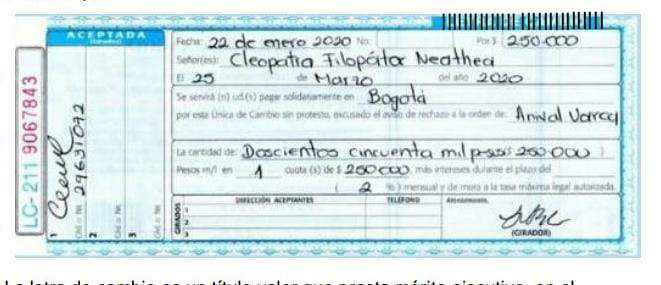 ACEPTADA
(Girados)
LC-211 9067843
1
29631092
Céd. o Nit.
2
Céd. o Nit.
3
Céd. o Nit.
Fecha: 22 de enero 2020 No. Por $ 250.000
Señor(es): Cleopatra Filopátor Neathea
El 25 de Marzo del año 2020
Se servirá (n) ud.(s) pagar solidariamente en Bogotá
por esta Única de Cambio sin protesto, excusado el aviso de rechazo a la orden de: Annival
La cantidad de: Doscientos cincuenta mil pesos 250.000 )
Pesos m/l en 1 cuota (s) de $ 250000, más intereses durante el plazo del
( 2 %) mensual y de mora a la tasa máxima legal autorizada.
GIRADOS DIRECCIÓN ACEPTANTES TELÉFONO Atentamente,
1
2
3
(GIRADOR)
La letra de cambio es un título valor que presta mérito ejecutivo, en el